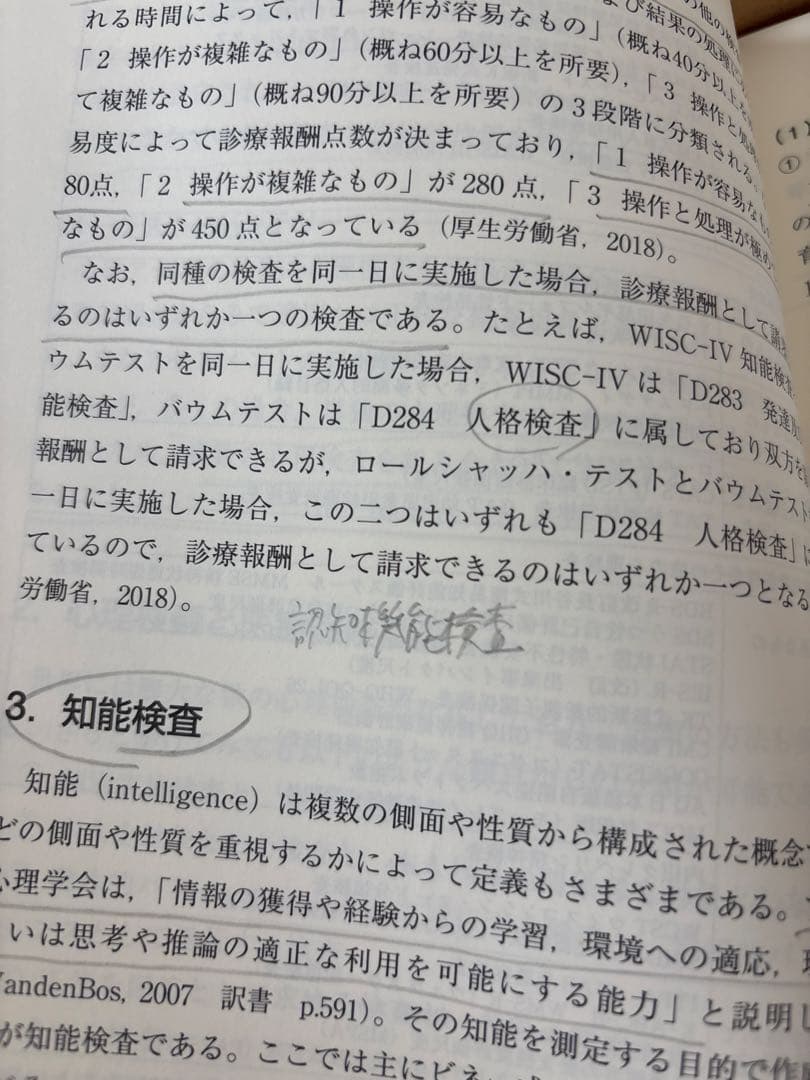 れる時間によって，「1 操作が容易なもの」(概ね40分以上を
「2 操作が複雑なもの」(概ね60分以上を所要)，「3 操作と処
て複雑なもの」(概ね90分以上を所要) の3段階に分類される。
易度によって診療報酬点数が決まっており，「1 操作が容易なも
80点，「2 操作が複雑なもの」が 280 点，「3 操作と処理が極め
なもの」が 450 点となっている (厚生労働省, 2018)。
なお，同種の検査を同一日に実施した場合，診療報酬として請
るのはいずれか一つの検査である。たとえば，WISC-IV 知能検査
ウムテストを同一日に実施した場合，WISC-IV は「D283 発達
能検査」，バウムテストは「D284 人格検査」に属しており双方を
報酬として請求できるが，ロールシャッハ・テストとバウムテスト
一日に実施した場合，この二つはいずれも「D284 人格検査」に
ているので，診療報酬として請求できるのはいずれか一つとなる
労働省, 2018)。
認知機能検査
3. 知能検査
知能 (intelligence) は複数の側面や性質から構成された概念
どの側面や性質を重視するかによって定義もさまざまである。
心理学会は，「情報の獲得や経験からの学習，環境への適応，
いは思考や推論の適正な利用を可能にする能力」と説明し
VandenBos, 2007 訳書 p.591)。その知能を測定する目的で作成
が知能検査である。ここでは主にビネ
(1)
①
の